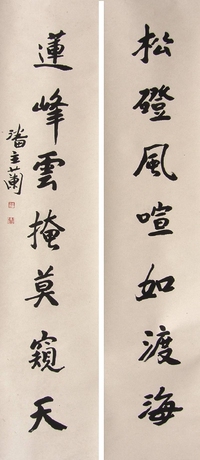 松磴風喧如渡海
蓮峰雲掩莫窺天
潘主蘭